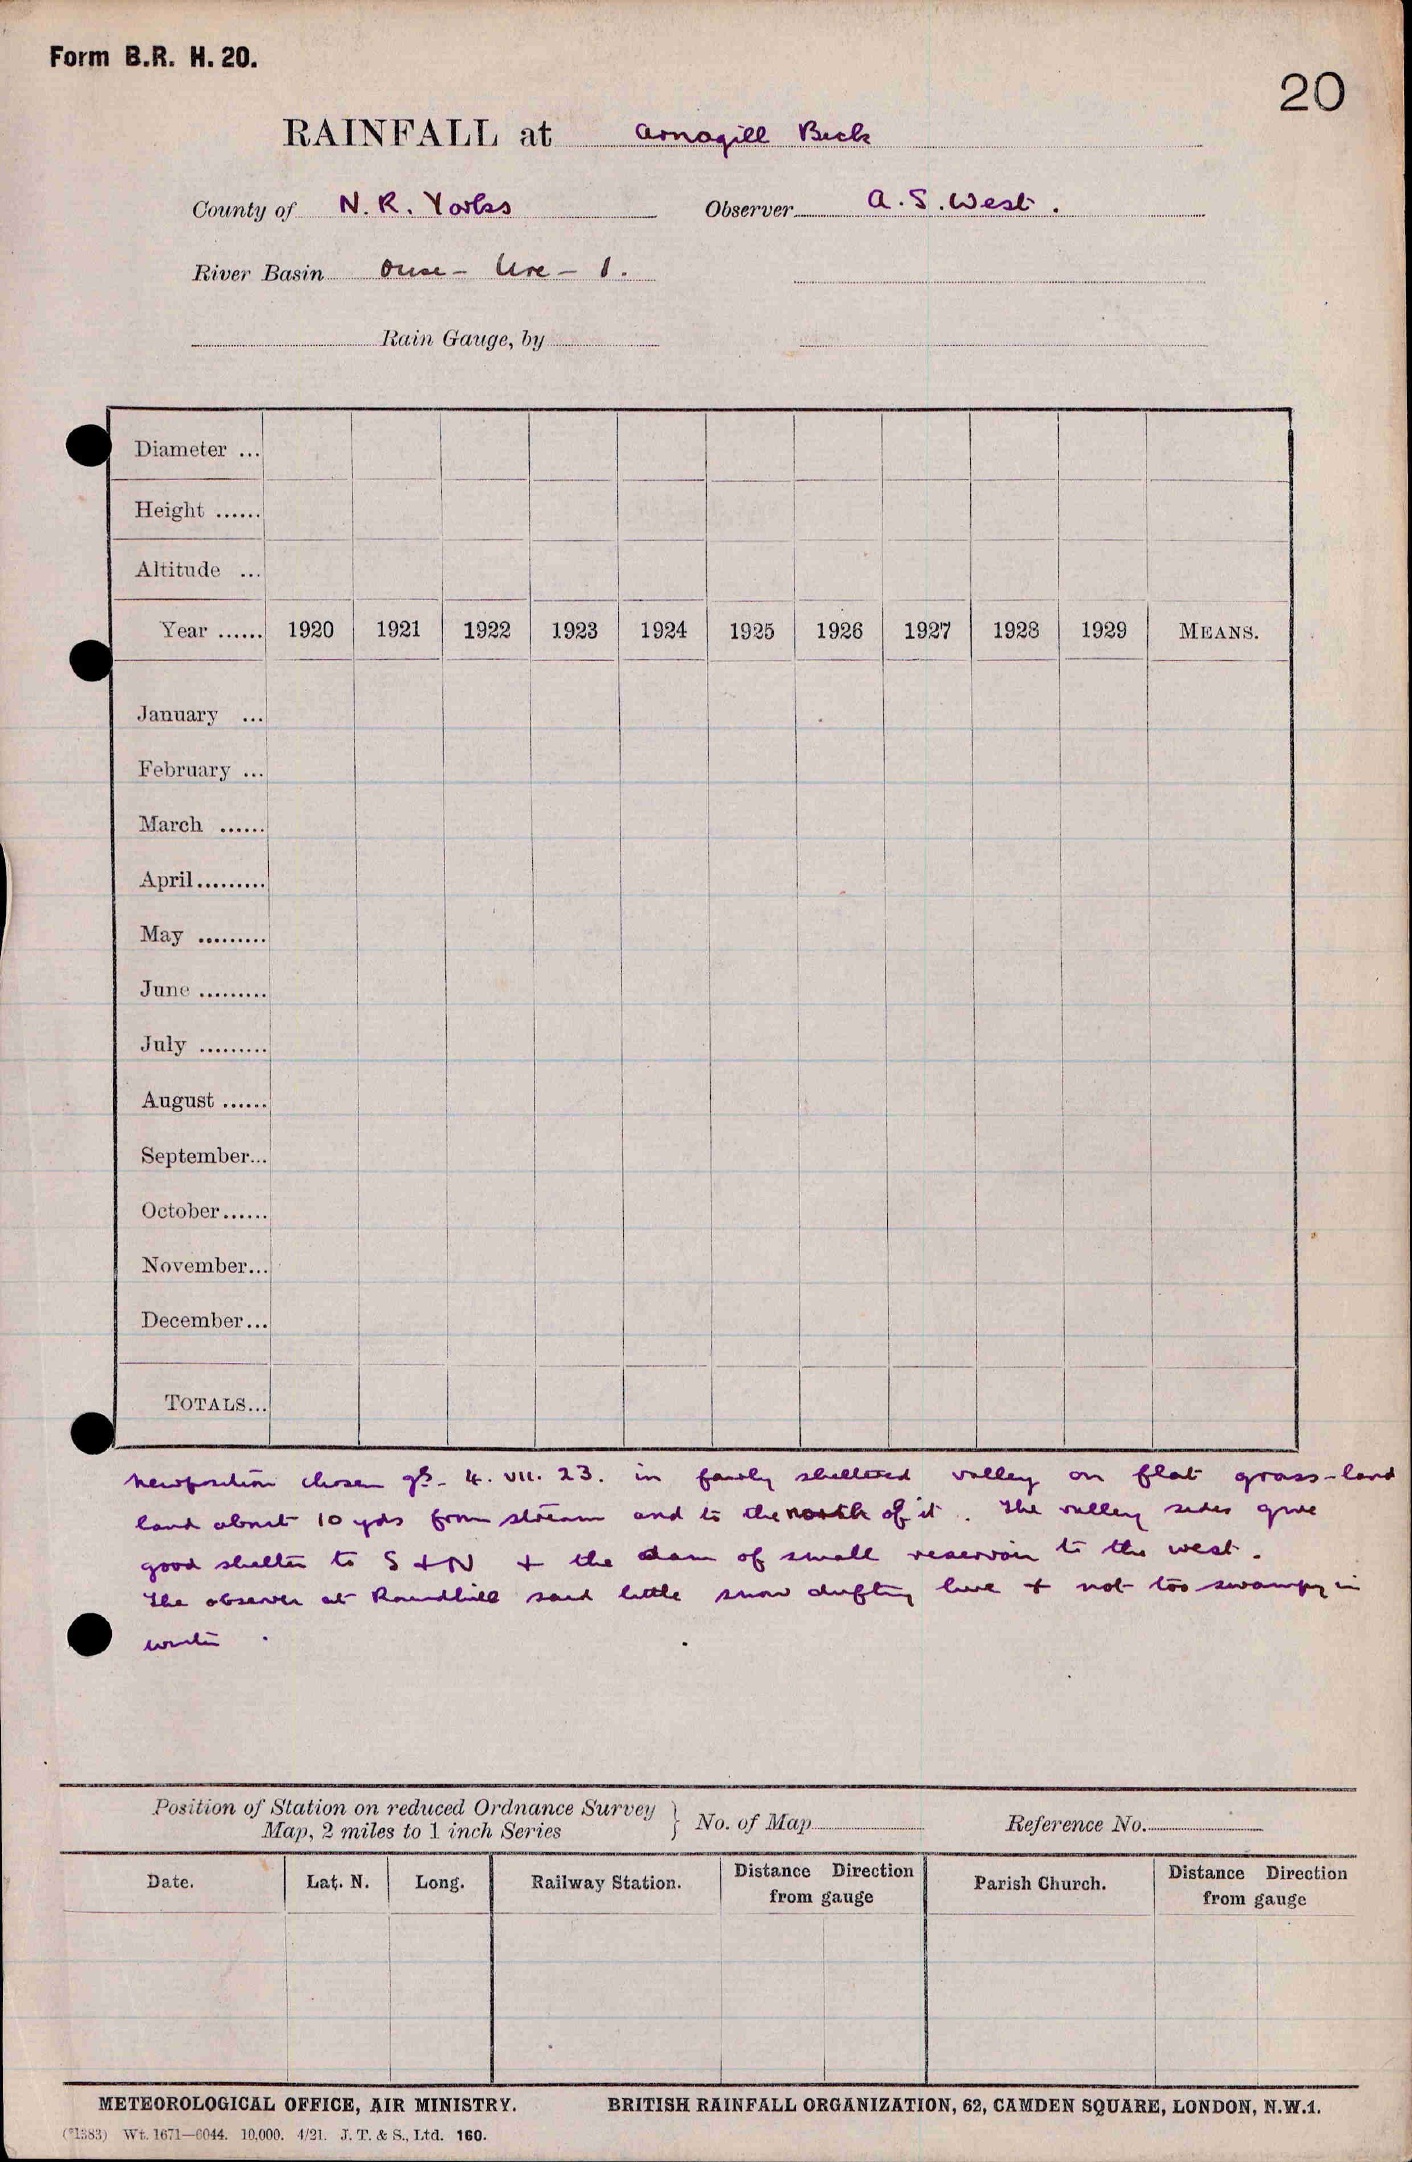 Form B.R. H. 20.
20
RAINFALL at Arnagill Beck
County of N. R. Yorks Observer A. S. West.
River Basin Ouse - Ure - 1.
Rain Gauge, by
Diameter ...
Height ......
Altitude ...
Year ...... 1920 1921 1922 1923 1924 1925 1926 1927 1928 1929 MEANS.
January ...
February ...
March ......
April.........
May .........
June .........
July .........
August ......
September...
October......
November...
December...
TOTALS...
New position chosen 4. VII. 23. in fairly sheltered valley on flat grass-land
land about 10 yds from stream and to the north of it. The valley sides give
good shelter to S + N + the dam of small reservoir to the west.
The observer at Roundhill said little snow drifting here + not too swampy in
winter.
Position of Station on reduced Ordnance Survey
Map, 2 miles to 1 inch Series } No. of Map Reference No.
Date. Lat. N. Long. Railway Station. Distance Direction from gauge Parish Church. Distance Direction from gauge
METEOROLOGICAL OFFICE, AIR MINISTRY. BRITISH RAINFALL ORGANIZATION, 62, CAMDEN SQUARE, LONDON, N.W.1.
(*1383) Wt. 1671—6044. 10,000. 4/21. J. T. & S., Ltd. 160.